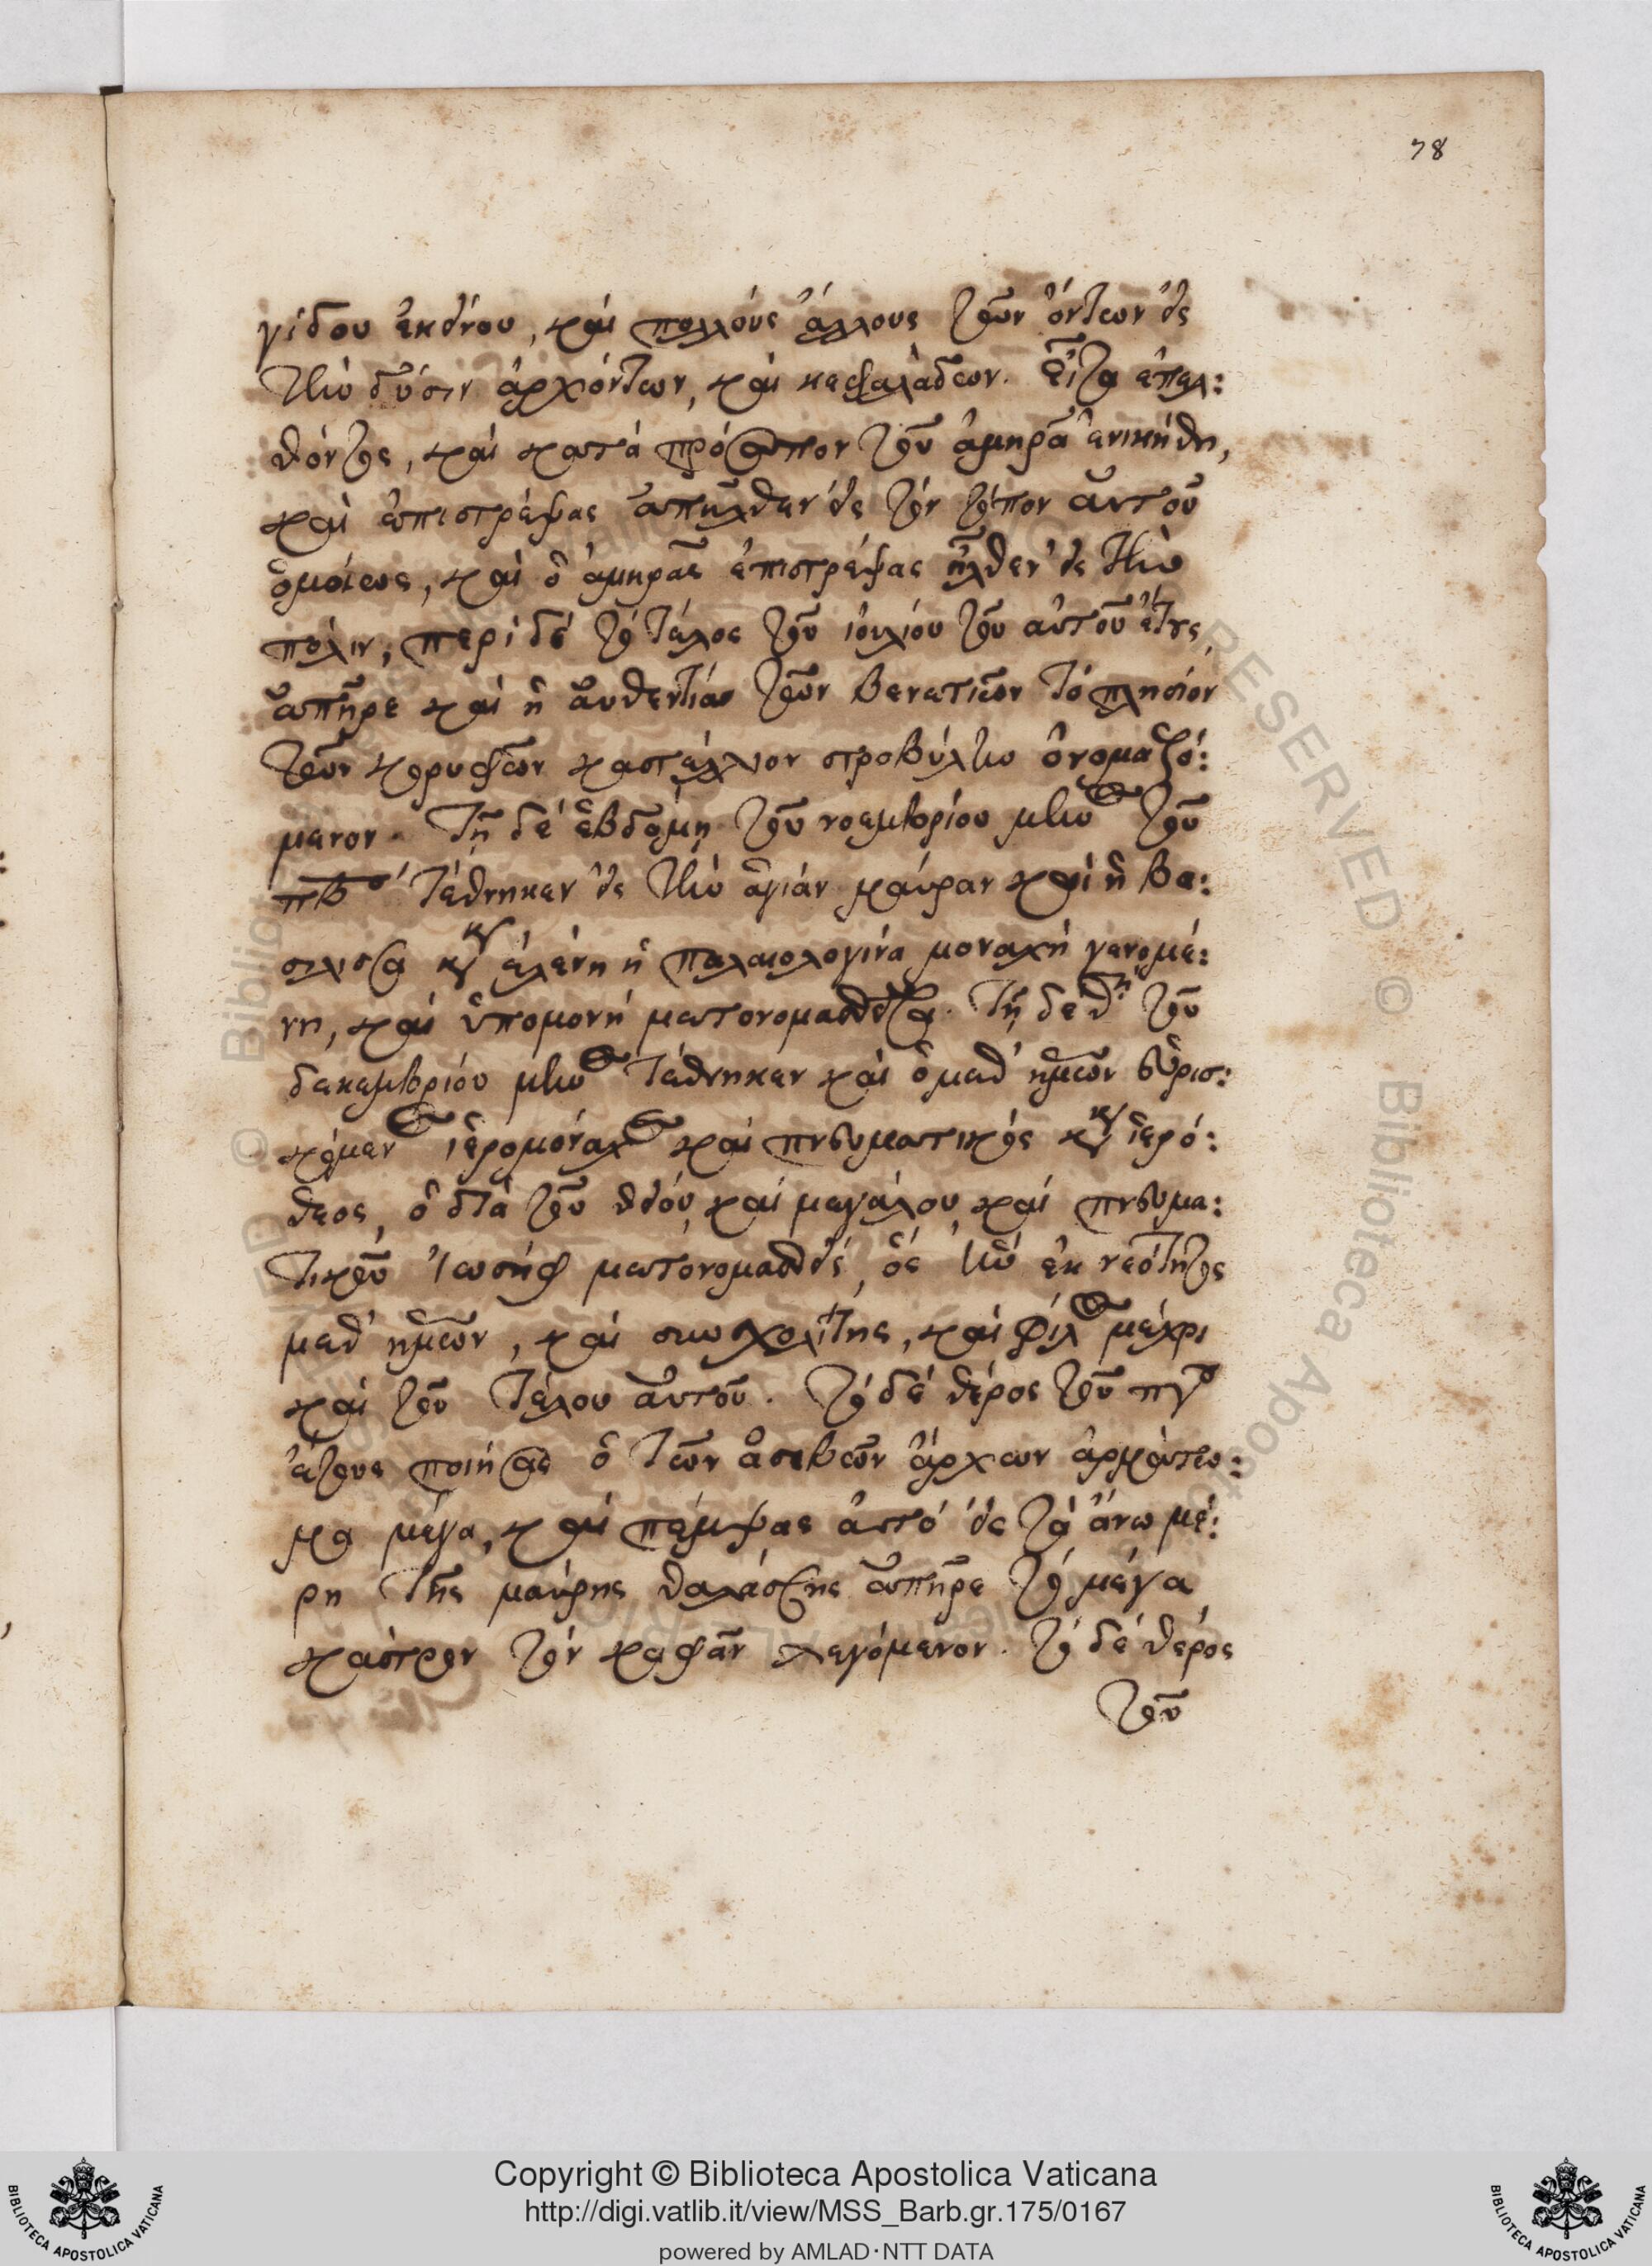 78
γίδου ἐκείνου, καὶ πολλοὺς ἄλλους τῶν ὄντων εἰς
τὴν δύσιν ἀρχόντων, καὶ κεφαλάδων. Εἶτα ἐπελ:
θόντος, καὶ κατὰ πρόσωπον τοῦ ἀμηρᾶ ἐνικήθη,
καὶ ἐπιστρέψας ἀπῆλθεν εἰς τὸν τόπον αυτοῦ
ὁμοίως, καὶ ὁ ἀμηρᾶς ἐπιστρέψας ἦλθεν εἰς τὴν
πόλιν, περὶ δὲ τὸ τέλος τοῦ ἰουλίου τοῦ αὐτοῦ ἔτους
ἀπῆρε καὶ ἡ αὐθεντία τῶν βενετικῶν τὸ πλησίον
τῶν κορυφῶν καστέλλιον στροβύλην ὀνομαζό:
μενον. Τῇ δὲ ἑβδόμῃ τοῦ νοεμβρίου μηνὸς τοῦ
πβου τέθνηκεν εἰς τὴν ἁγίαν μαύραν καὶ ἡ βα:
σίλισσα κυ ἑλένη ἡ παλαιολογίνα μοναχὴ γενομέ:
νη, καὶ ὑπομονὴ μετονομασθεῖσα. Τῇ δε θη τοῦ
δεκεμβρίου μηνὸς τέθνηκεν καὶ ὁ μεθ' ἡμῶν εὑρισ:
κόμενος ἱερομόναχος καὶ πνευματικὸς κυ ἱερό:
θεος, ὁ διὰ τοῦ θείου καὶ μεγάλου καὶ πνευμα:
τικοῦ Ἰωσὴφ μετονομασθεὶς, ὃς ἦν ἐκ νεότητος
μεθ' ἡμῶν, καὶ συσχολίτης, καὶ φίλος μέχρι
καὶ τοῦ τέλου αὐτοῦ. Τὸ δὲ θέρος τοῦ πγου
ἔτους ποιήσας ὁ τῶν ἀσεβῶν ἄρχων ἀρμάτω:
μα μέγα, καὶ πέμψας αὐτὸ εἰς τὰ ἄνω μέ:
ρη τῆς μαύρης θαλάσσης ἀπῆρε τὸ μέγα
κάστρον τὸν καφᾶν λεγόμενον. Τὸ δὲ θέρος
τοῦ
RESERVED © Biblioteca Apostolica
Copyright © Biblioteca Apostolica Vaticana
http://digi.vatlib.it/view/MSS_Barb.gr.175/0167
powered by AMLAD·NTT DATA
BIBLIOTECA APOSTOLICA VATICANA
BIBLIOTECA APOSTOLICA VATICANA